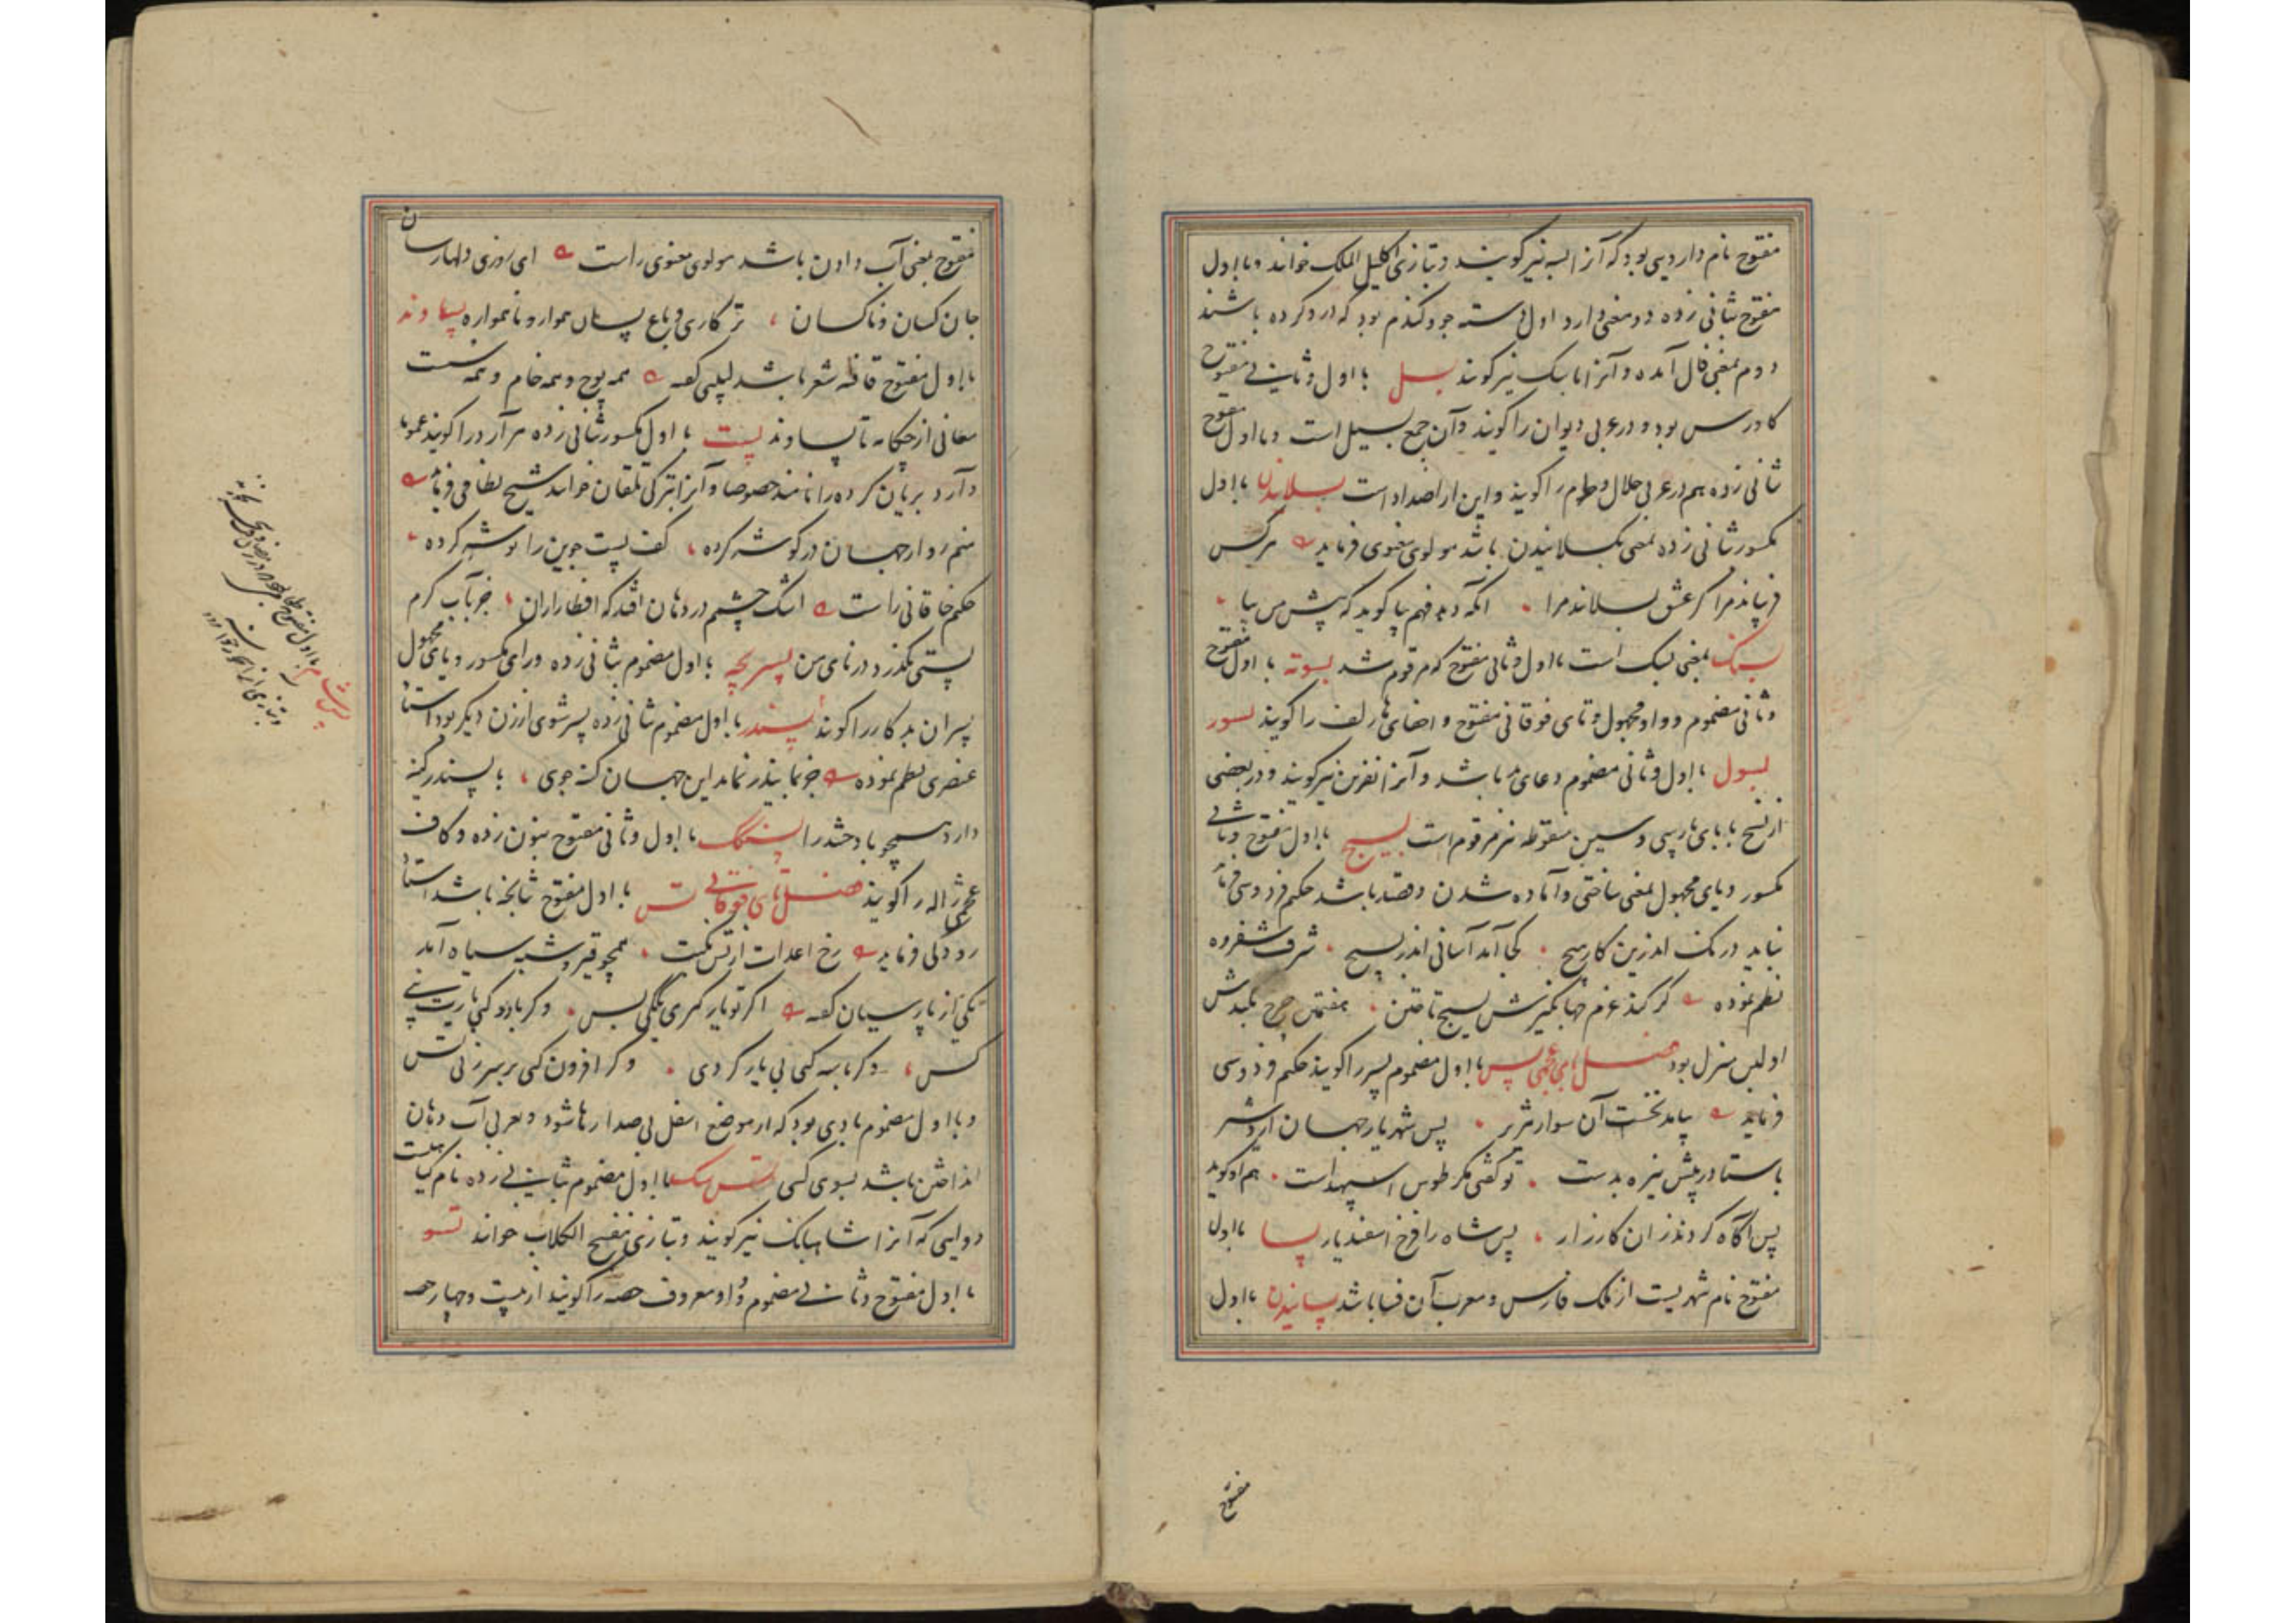 مفتوح نام دارویی بود که آنرا بسه نیز گویند و بتازی اکلیل الملک خوانند و با اول
مفتوح بثانی زده دو معنی دارد اول دسته جو و گندم بود که درو کرده باشند
دوم بمعنی فال آمده و آنرا بابسک نیز گویند بسل با اول و ثانی مفتوح
کاورس بود و در عربی دیوان را گویند و آن جمع بسیل است و با اول مفتوح
ثانی زده هم در عربی حلال و حرام را گویند و این از اضداد است بسلاندن با اول
مکسور ثانی زده بمعنی بکسلانیدن باشد مولوی معنوی فرماید هر کس
فریاند مرا کز عشق بسلاند مرا آنکه دهد فهم بیا گوید که پیش من بیا
بسنک بمعنی بسک است با اول و ثانی مفتوح که مرقوم شد بسوته با اول مفتوح
و ثانی مضموم و واو مجهول و تای فوقانی مفتوح و اخفای ها زلف را گویند بسور
بسول با اول و ثانی مضموم دعای بد باشد و آنرا نفرین نیز گویند و در بعضی
از نسخ با بای پارسی و سین منقوطه نیز مرقوم است بسیج با اول مفتوح و ثانی
مکسور و یای مجهول بمعنی ساختی و آماده شدن و قصد باشد حکیم فردوسی فرماید
نباید درنک اندرین کار هیچ کجا آمد آسانی اندر بسیج شرف شفروه
نظم نموده گر کند عزم جهانگیرش بسیج تاختن هفتمین چرخ بلندش
اولین منزل بود فصل بای عجمی پس با اول مضموم پسر را گویند حکیم فردوسی
فرماید بیامد نخست آن سوار هژیر پس شهریار جهان اردشیر
باستاد در پیش نیزه بدست تو گفتی مگر طوس اسپهبد است هم او گوید
پس آگاه کردند زان کارزار پس شاه را فرخ اسفندیار پسا با اول
مفتوح نام شهریست از ملک فارس و معرب آن فسا باشد پسانیدن با اول
مفتوح
مفتوح بمعنی آب دادن باشد مولوی معنوی راست ای روزی دلها رسان
جان کسان و ناکسان ترکاری و باغ پسان هموار و ناهمواره پساوند
با اول مفتوح قافیه شعر باشد لبیبی گفته همه پوچ و همه خام و همه سست
معانی از چکامه تا پساوند پست با اول مکسور ثانی زده هر آرد را گویند عموما
و آرد بریان کرده را نامند خصوصا و آنرا بترکی تلقان خوانند شیخ نظامی فرماید
منم رو از جهان در گوشه کرده کف پست جوین را توشه کرده
حکیم خاقانی راست اشک چشمم در دهان افتد که افطار از آن جز بآب گرم
پستی نگذرد در نای من پسریچه با اول مضموم ثانی زده و رای مکسور و یای مجهول
پسران بدکار را گویند پسندر با اول مضموم ثانی زده پسر شوی از زن دیگر بود استاد
عنصری نظم نموده جز بمابندر نماند این جهان کینه جوی با پسندر کینه
دارد همچو با دختندرا پسنگ با اول و ثانی مفتوح بنون زده و کاف
عجمی ژاله را گویند فصل تای فوقانی تس با اول مفتوح تپانچه باشد استاد
رودکی فرماید رخ اعدات از تس نکبت همچو قیر و شبه سیاه آمد
یکی از پارسیان گفته اگر تو یار گیری یکی بس وگر با دو کنی یاریت نی
کس وگر با سه کنی بی یار گردی وگر افزون کنی بر سر زنی تس
و با اول مضموم بادی بود که از موضع اسفل بی صدا رها شود و بعربی آب دهان
انداختن باشد بسوی کسی با اول مضموم بثانی زده نام گیاهیست
دوایی که آنرا شابابک نیز گویند و بتازی الکلاب خوانند تسو
با اول مفتوح و ثانی مضموم و واو معروف حصه را گویند از بیست و چهار حصه
با اول مفتوح